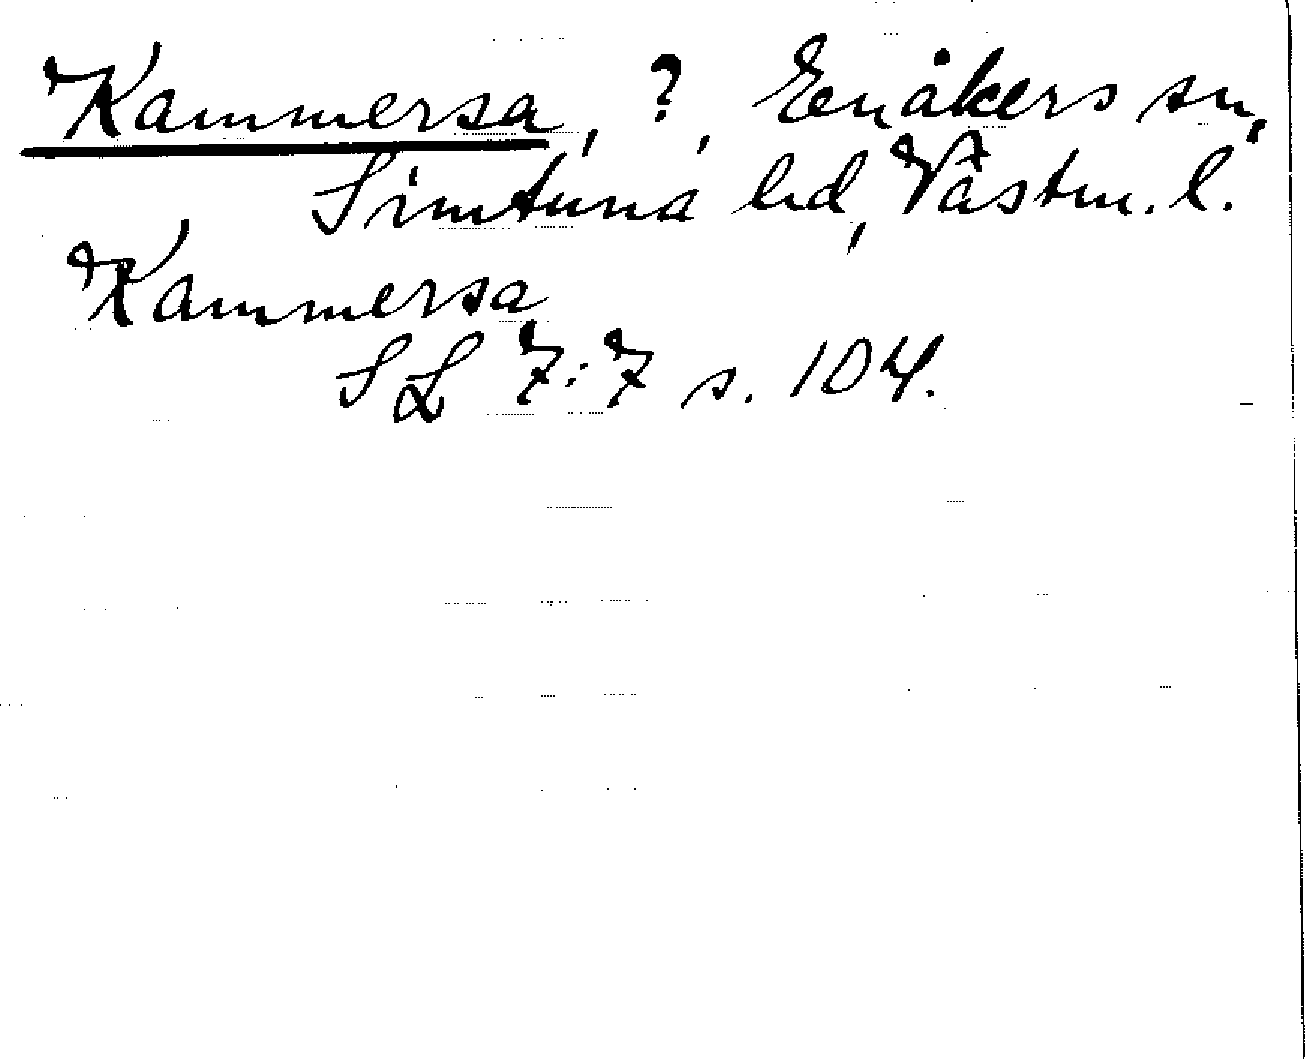 Kammersa, ?, Enåkers sn,
Simtuna hd, Västm. l.
Kammersa
SL 7:7 s. 104.